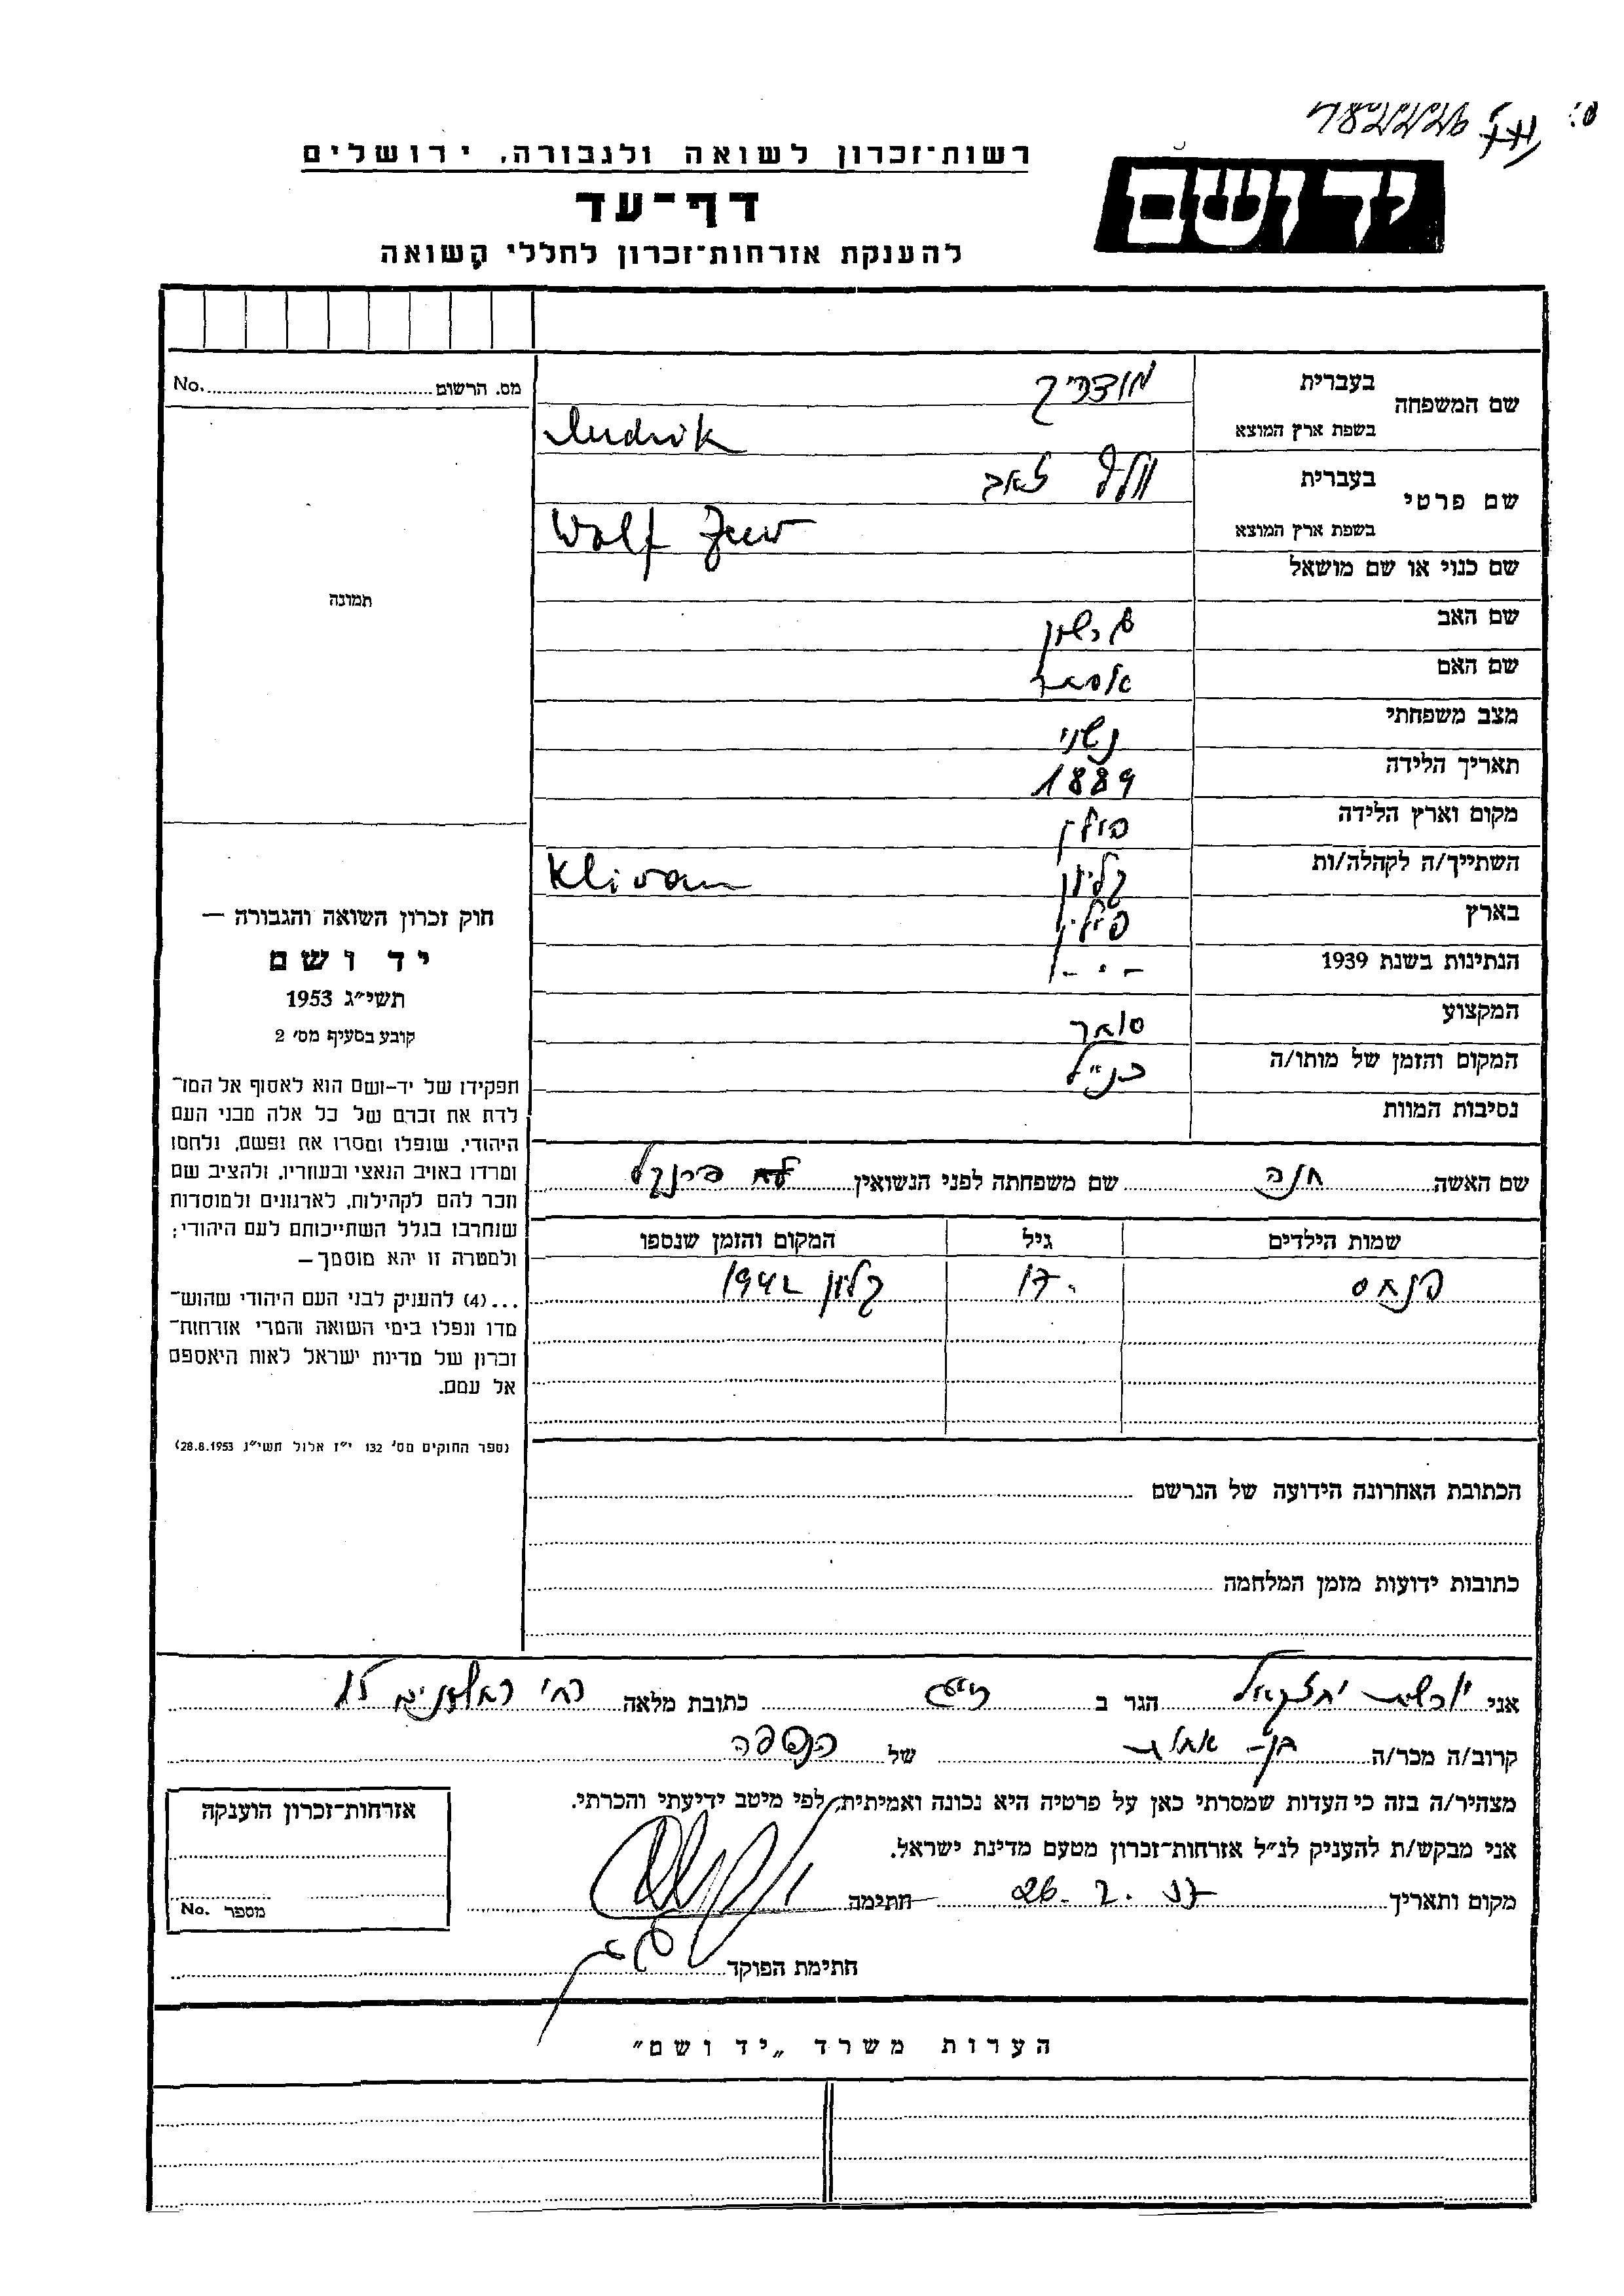 782226
רשות-זכרון לשואה ולגבורה, ירושלים
יד ושם
דף-עד
להענקת אזרחות-זכרון לחללי השואה
מס. הרשום No.
תמונה
חוק זכרון השואה והגבורה —
יד ושם
תשי״ג 1953
קובע בסעיף מס׳ 2
תפקידו של יד-ושם הוא לאסוף אל המו־
לדת את זכרם של כל אלה מבני העם
היהודי, שנפלו ומסרו את נפשם, נלחמו
ומרדו באויב הנאצי ובעוזריו, ולהציב שם
וזכר להם לקהילות, לארגונים ולמוסדות
שנחרבו בגלל השתייכותם לעם היהודי;
ולמטרה זו יהא מוסמך —
...(4) להעניק לבני העם היהודי שהוש־
מדו ונפלו בימי השואה והמרי אזרחות־
זכרון של מדינת ישראל לאות היאספם
אל עמם.
(ספר החוקים מס׳ 132 י״ז אלול תשי״ג 28.8.1953)
שם המשפחה
בעברית
בשפת ארץ המוצא
שם פרטי
בעברית וולף זאב
בשפת ארץ המוצא Wolf Zeew
שם כנוי או שם מושאל
שם האב גרשון
שם האם אסתר
מצב משפחתי נשוי
תאריך הלידה 1889
מקום וארץ הלידה פולין
השתייך/ה לקהלה/ות קליון Klivan
בארץ פולין
הנתינות בשנת 1939 - " -
המקצוע סוחר
המקום והזמן של מותו/ה כנ״ל
נסיבות המוות
שם האשה חנה שם משפחתה לפני הנשואין פרנקל
שמות הילדים גיל המקום והזמן שנספו
פנחס 17 קליון 1942
הכתובת האחרונה הידועה של הנרשם
כתובות ידועות מזמן המלחמה
אני יחזקאל הגר ב כתובת מלאה רח׳ 15
קרוב/ה מכר/ה בן- אחות של הנספה
מצהיר/ה בזה כי העדות שמסרתי כאן על פרטיה היא נכונה ואמיתית, לפי מיטב ידיעתי והכרתי.
אני מבקש/ת להעניק לנ״ל אזרחות-זכרון מטעם מדינת ישראל.
מקום ותאריך חתימה
חתימת הפוקד
אזרחות-זכרון הוענקה
מספר No.
הערות משרד „יד ושם״